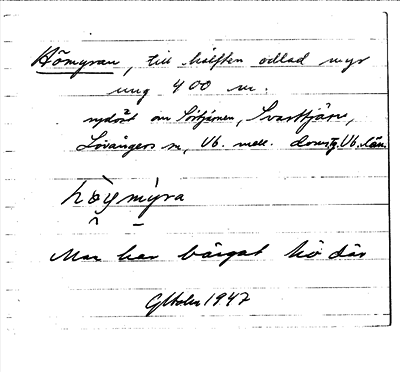 Hömyran, till hälften odlad myr
ung 400 m.
sydöst om Sörtjärnen, Svarttjärn,
Lövångers sn, Vb. mell. domsg. Vb. län.
hòymýra
Man har bärgat hö där
1947